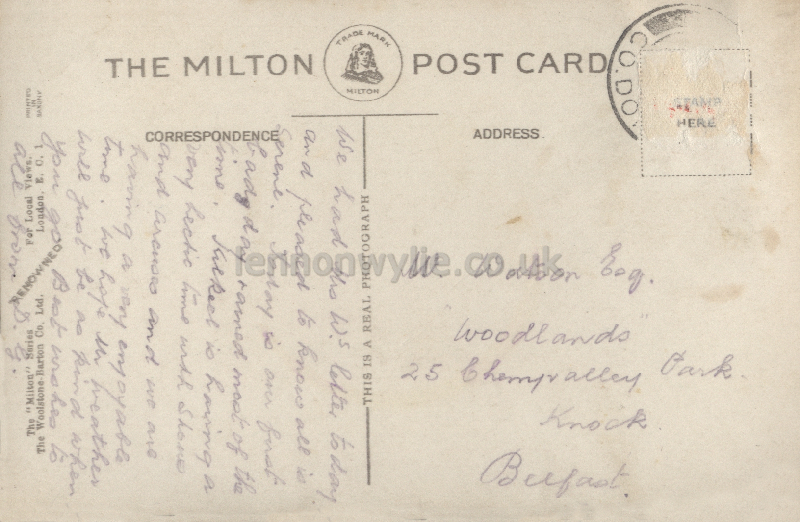 THE MILTON POST CARD
TRADE MARK
MILTON
CORRESPONDENCE
ADDRESS
STAMP
HERE
CO. DO
We had Mrs Ws letter to day
and pleased to know all is
serene. Today is our first
bad day, rained most of the
time. is having a
very hectic time with shows
and arenas and we are
having a very enjoyable
time. We hope the weather
will just be as kind when
you go. Best wishes to
all from D. G.
W. Watson Esq.
"Woodlands"
25 Cherryvalley Park.
Knock.
Belfast.
THIS IS A REAL PHOTOGRAPH
The "Milton" Series
The Woolstone-Barton Co. Ltd.
RENOWNED
For Local Views.
London, E. C. 1
PRINTED
IN
SAXONY
lennonwylie.co.uk